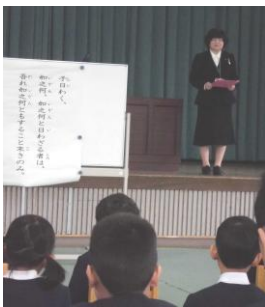 子曰わく、
如之何、如之何と曰わざる者は、
吾れ如之何ともすること末きのみ。